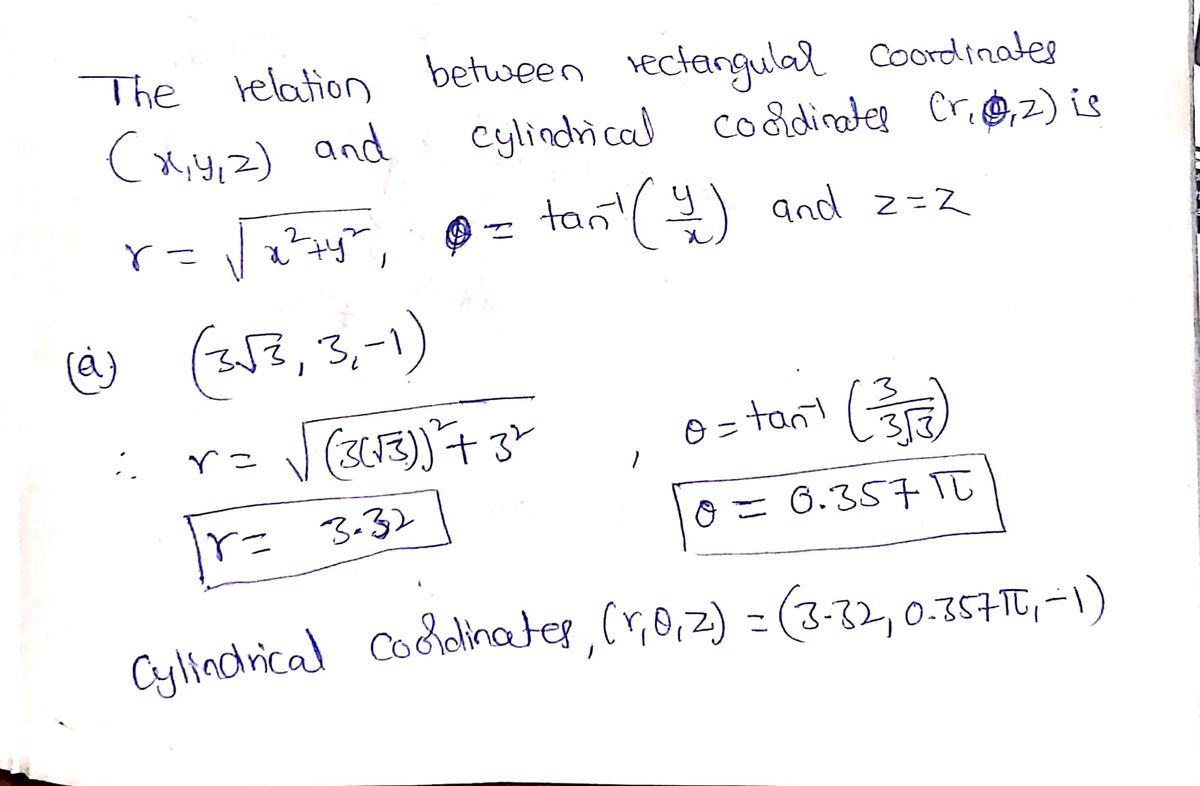 The relation between rectangular coordinates
(x,y,z) and cylindrical coordinates (r,θ,z) is
r = √(x²+y²), θ = tan⁻¹(y/x) and z=z
(a) (3√3, 3,-1)
∴ r = √((3(√3))²+3²), θ = tan⁻¹(3/3√3)
r = 3.32 θ = 0.357π
Cylindrical coordinates, (r,θ,z) = (3.32, 0.357π,-1)